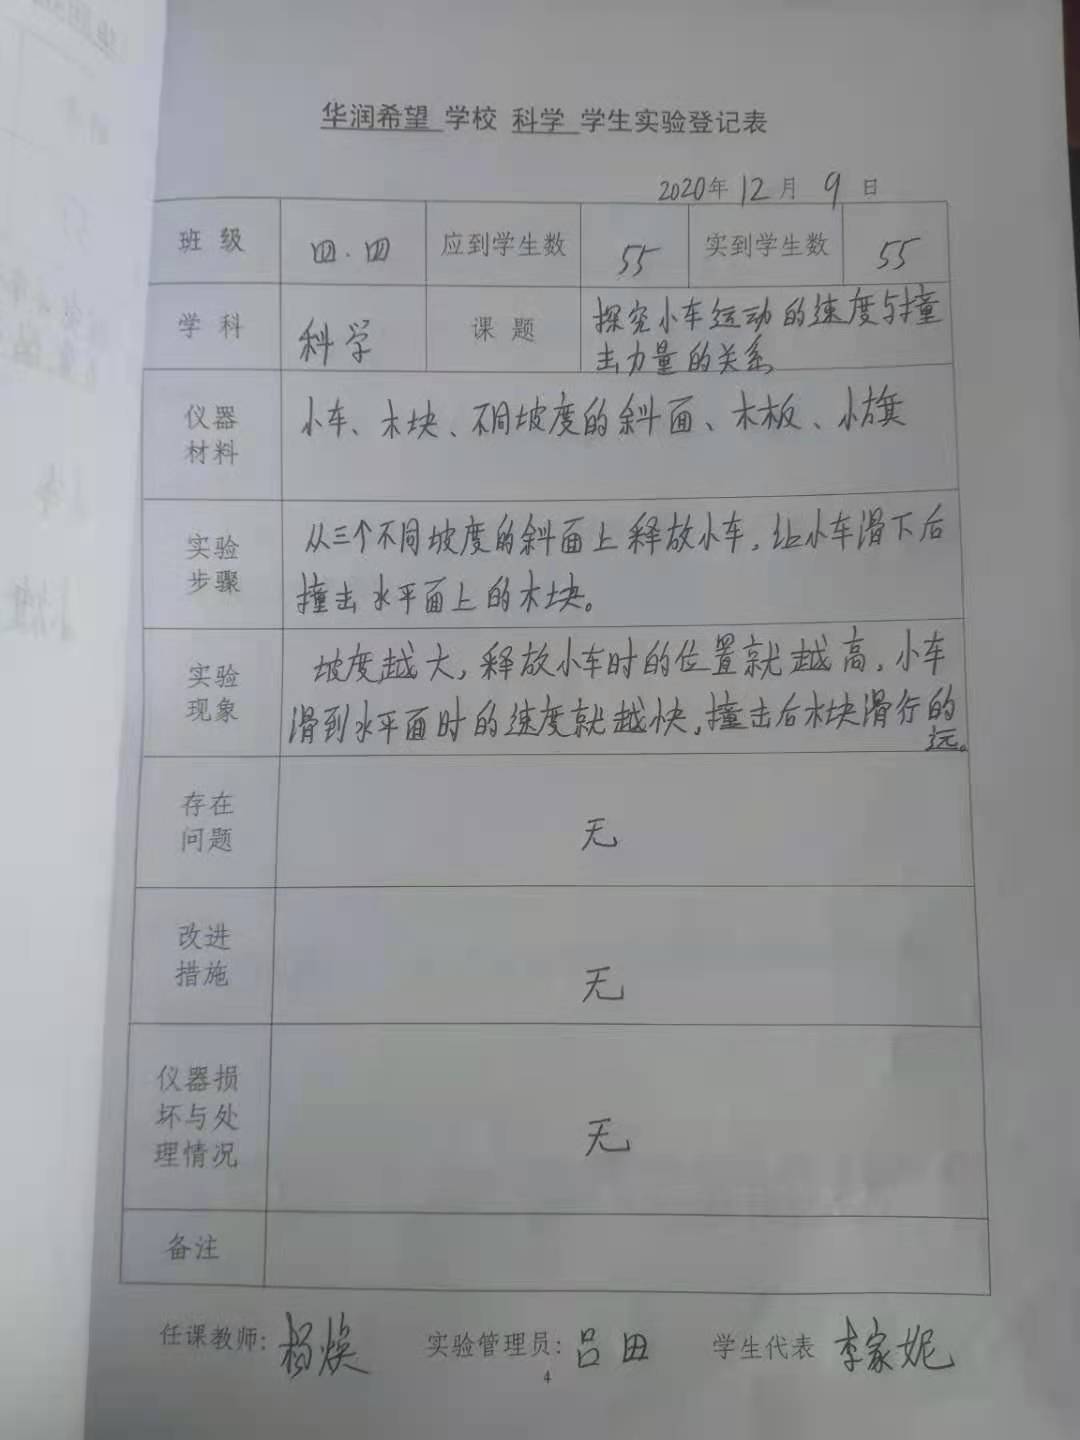 华润希望 学校 科学 学生实验登记表
2020年 12月 9日
班 级 四.四 应到学生数 55 实到学生数 55
学 科 科学 课 题 探究小车运动的速度与撞
击力量的关系
仪器
材料
小车、木块、不同坡度的斜面、木板、小旗
实验
步骤
从三个不同坡度的斜面上释放小车,让小车滑下后
撞击水平面上的木块。
实验
现象
坡度越大,释放小车时的位置就越高,小车
滑到水平面时的速度就越快,撞击后木块滑行的
远。
存在
问题
无
改进
措施
无
仪器损
坏与处
理情况
无
备注
任课教师: 杨焕 实验管理员: 吕田 学生代表 李家妮
4